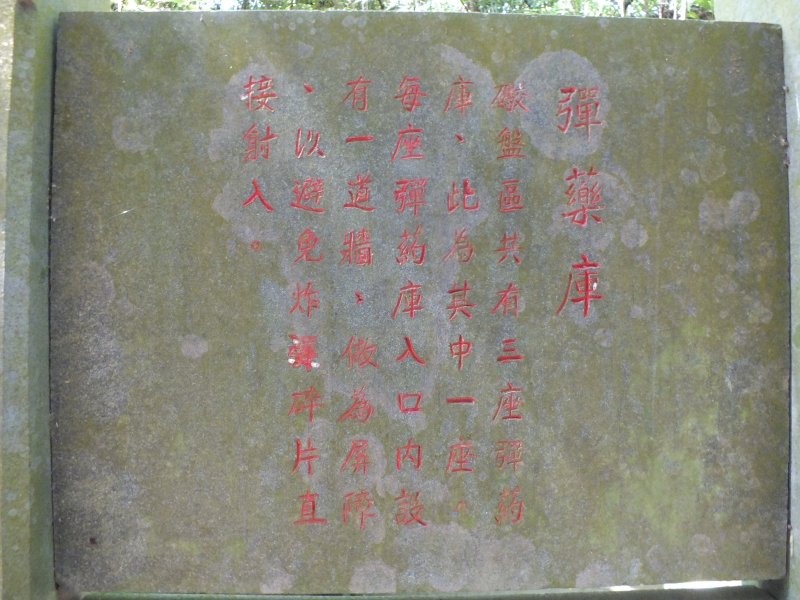 彈藥庫
礮盤區共有三座彈葯
庫、此為其中一座。
每座彈葯庫入口內設
有一道牆、做為屏障
、以避免炸彈碎片直
接射入。